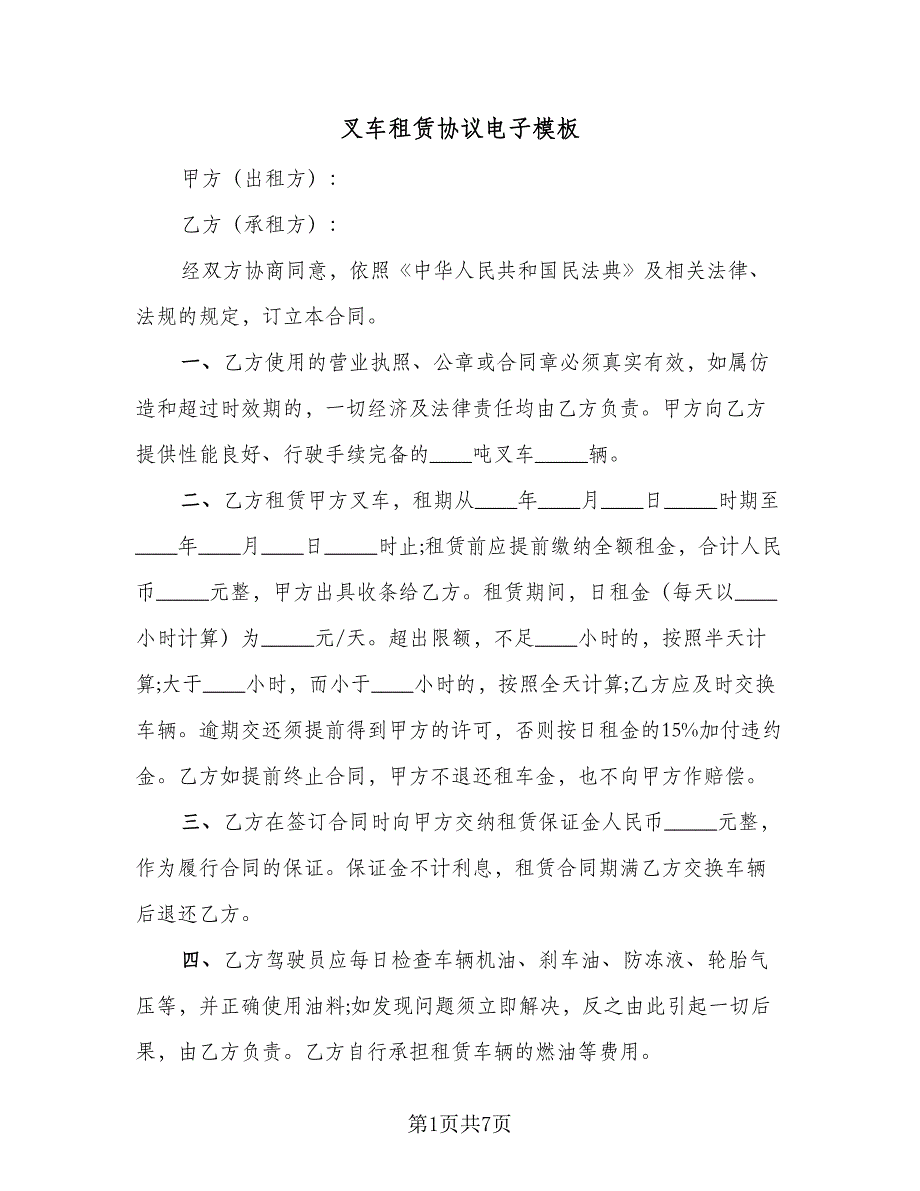 叉车租赁协议电子模板
甲方（出租方）：
乙方（承租方）：
经双方协商同意，依照《中华人民共和国民法典》及相关法律、
法规的规定，订立本合同。
一、乙方使用的营业执照、公章或合同章必须真实有效，如属仿
造和超过时效期的，一切经济及法律责任均由乙方负责。甲方向乙方
提供性能良好、行驶手续完备的____吨叉车_____辆。
二、乙方租赁甲方叉车，租期从____年____月____日_____时期至
____年____月____日_____时止;租赁前应提前缴纳全额租金，合计人民
币_____元整，甲方出具收条给乙方。租赁期间，日租金（每天以____
小时计算）为_____元/天。超出限额，不足____小时的，按照半天计
算;大于____小时，而小于____小时的，按照全天计算;乙方应及时交换
车辆。逾期交还须提前得到甲方的许可，否则按日租金的15%加付违约
金。乙方如提前终止合同，甲方不退还租车金，也不向甲方作赔偿。
三、乙方在签订合同时向甲方交纳租赁保证金人民币_____元整，
作为履行合同的保证。保证金不计利息，租赁合同期满乙方交换车辆
后退还乙方。
四、乙方驾驶员应每日检查车辆机油、刹车油、防冻液、轮胎气
压等，并正确使用油料;如发现问题须立即解决，反之由此引起一切后
果，由乙方负责。乙方自行承担租赁车辆的燃油等费用。
第1页共7页